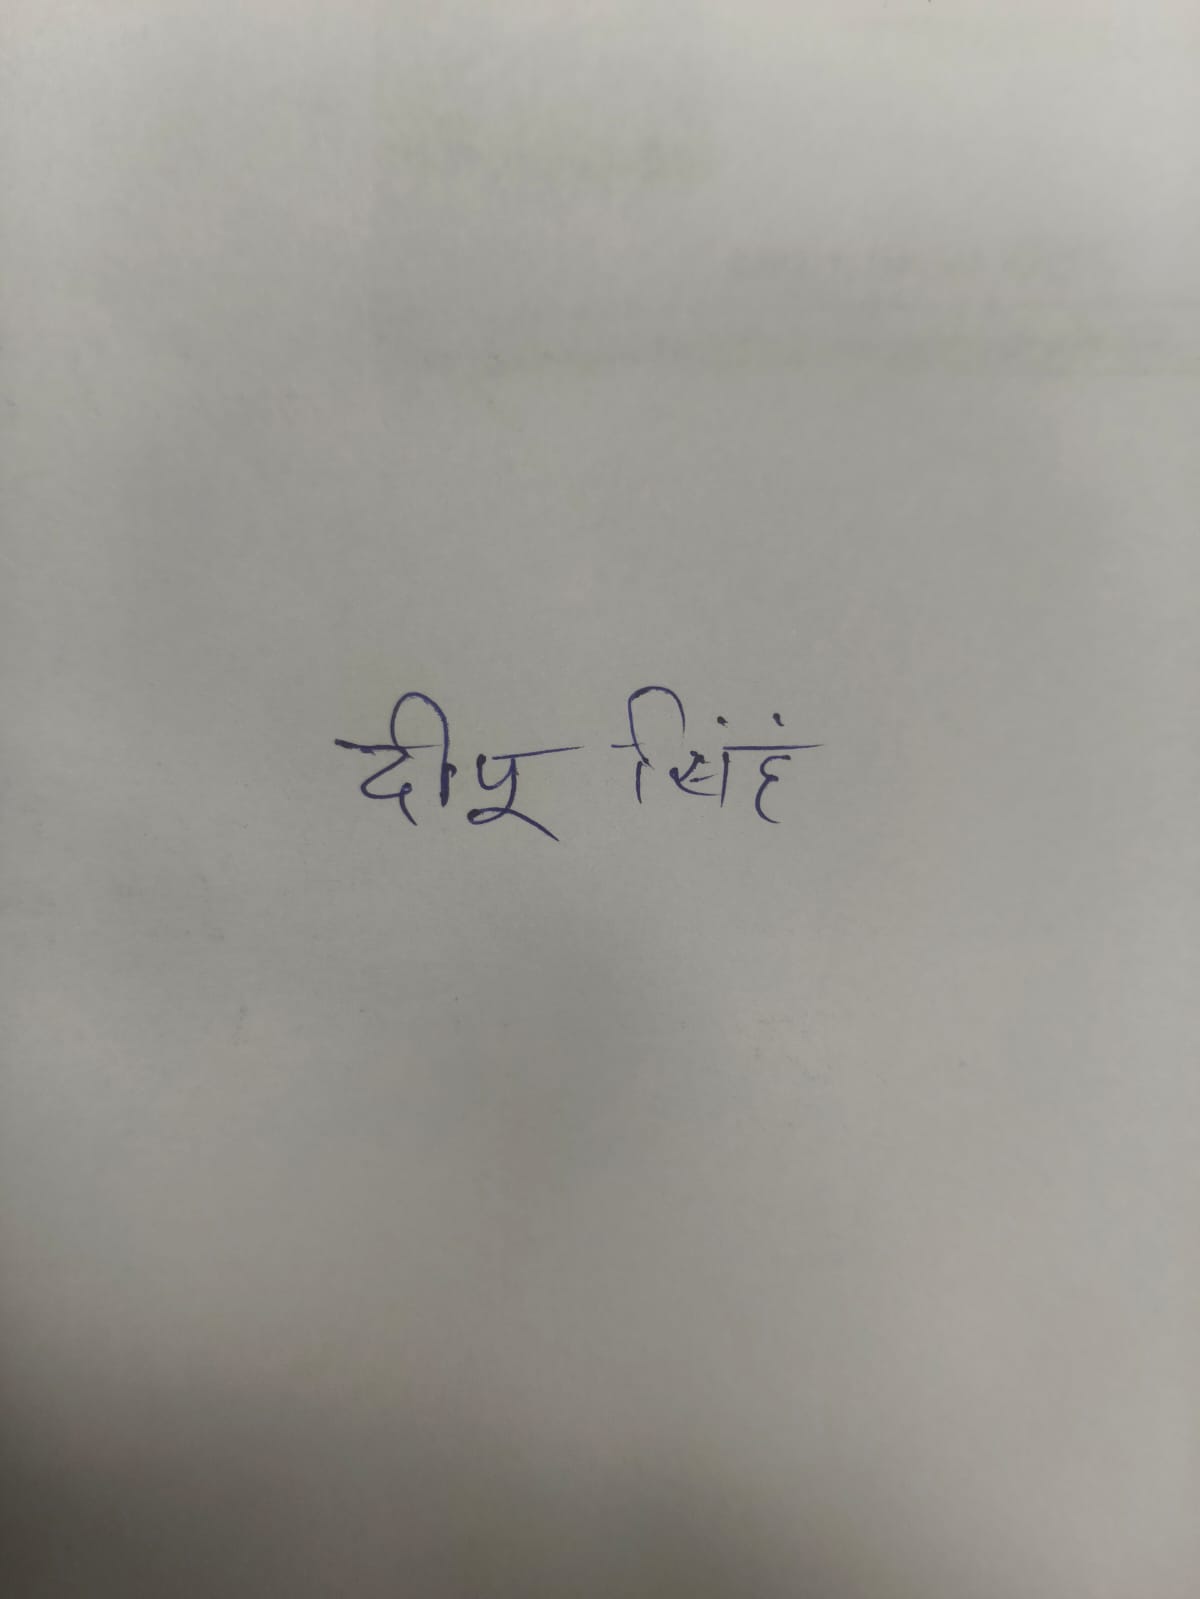 दीपू सिंहं